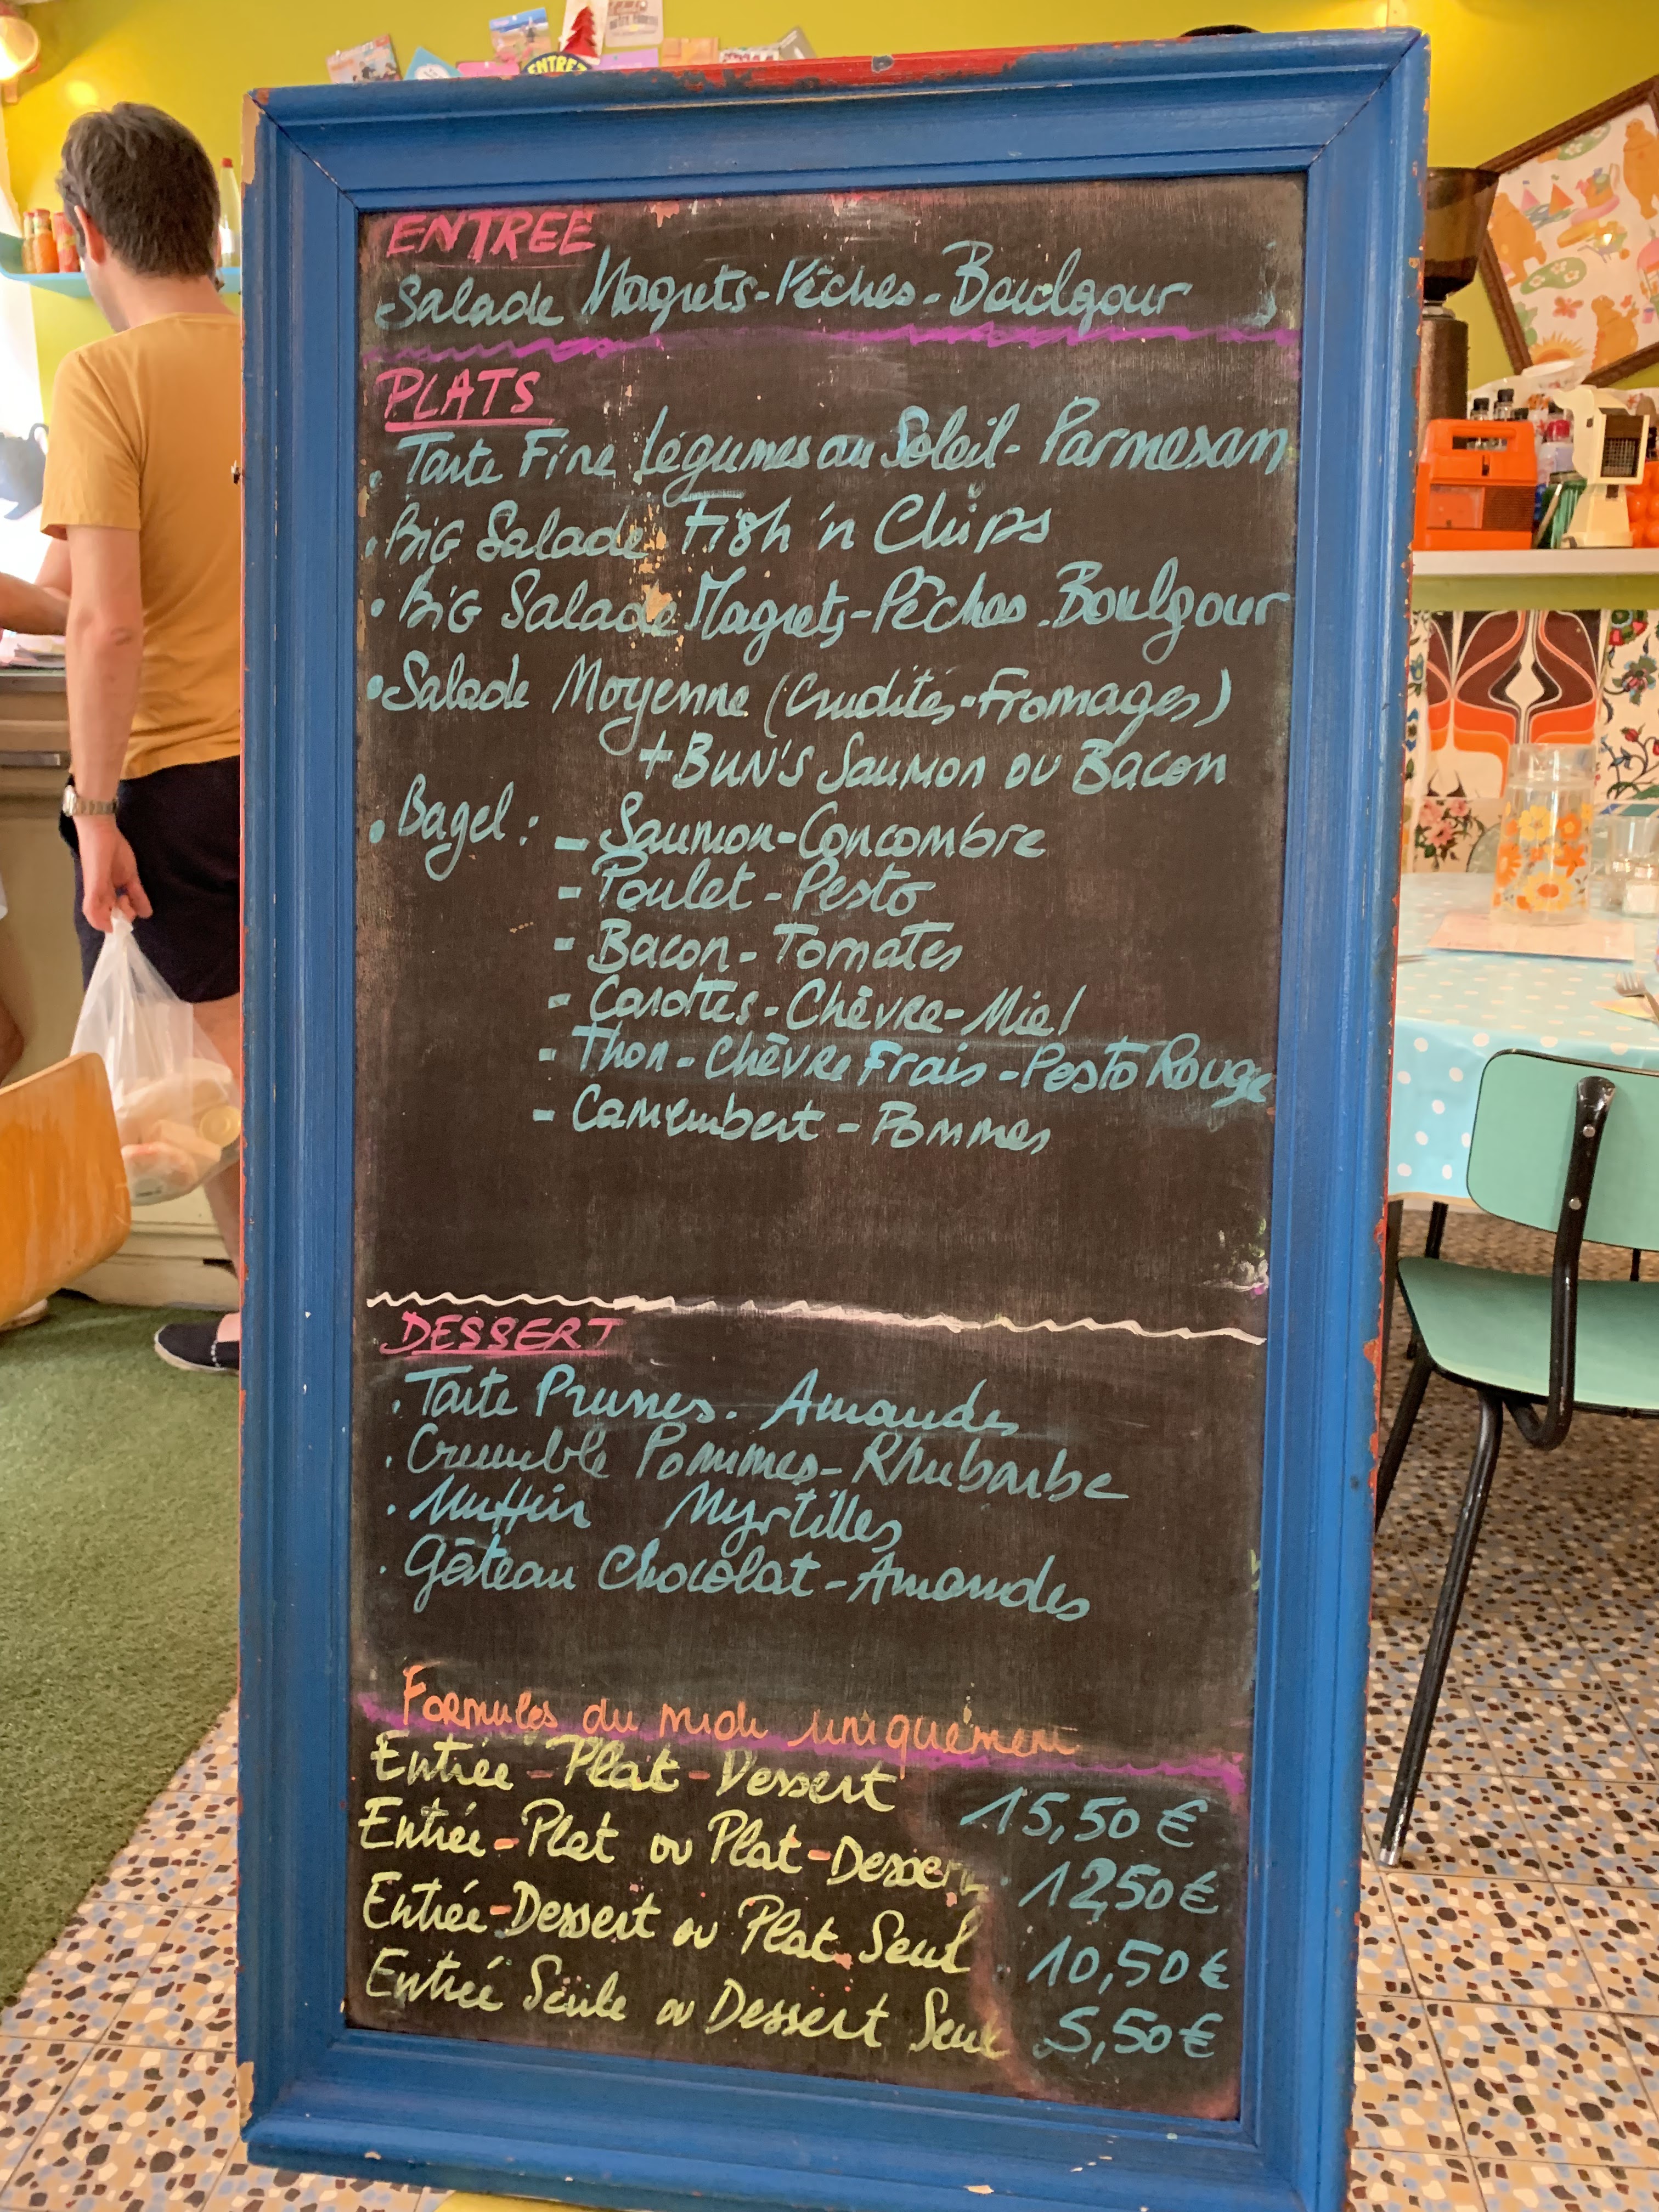 ENTREZ
ENTREE
-Salade Magrets-Pêches-Boulgour
PLATS
. Tarte Fine Légumes au Soleil- Parmesan
. BiG Salade Fish 'n Chips
. BiG Salade Magrets-Pêches-Boulgour
. Salade Moyenne (Crudités-Fromages)
+BUN'S Saumon ou Bacon
. Bagel: - Saumon-Concombre
- Poulet-Pesto
- Bacon-Tomates
- Carottes-Chèvre-Miel
- Thon-Chèvre Frais-Pesto Rouge
- Camembert-Pommes
DESSERT
. Tarte Prunes. Amandes
. Crumble Pommes-Rhubarbe
. Muffin Myrtilles
. Gâteau Chocolat-Amandes
Formules du midi uniquement
Entrée-Plat-Dessert 15,50€
Entrée-Plat ou Plat-Dessert 12,50€
Entrée-Dessert ou Plat Seul 10,50€
Entrée Seule ou Dessert Seul 5,50€